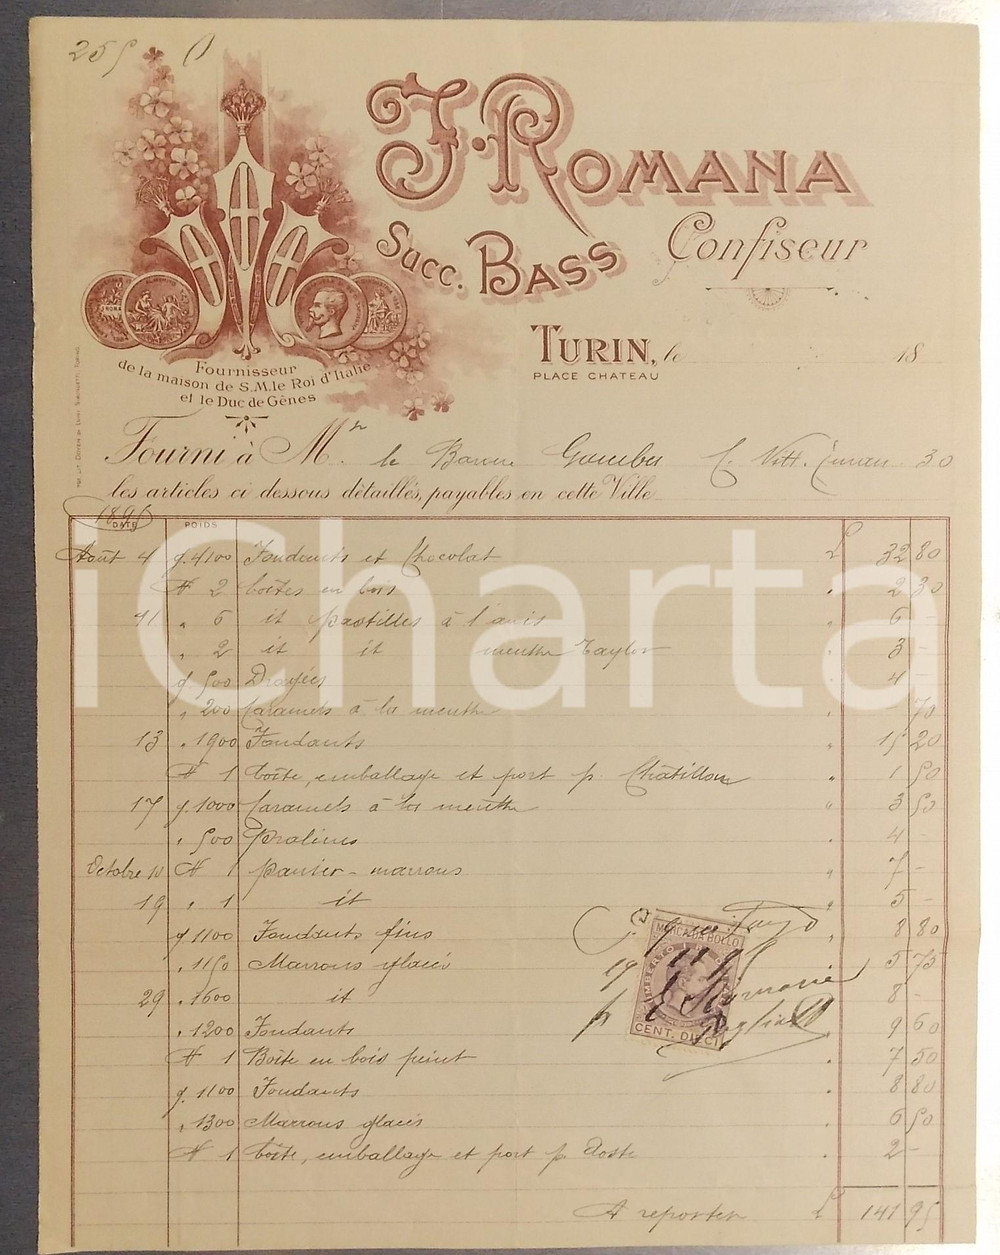 255
J. ROMANA
Succ. BASS Confiseur
TURIN, le 18
PLACE CHATEAU
Fournisseur
de la maison de S.M. le Roi d'Italie
et le Duc de Gênes
Fourni à Mr. le Baron C. Vitt. 30
les articles ci dessous détaillés, payables en cette Ville
1895
DATE POIDS
Août 4 g. 4100 Fondants et Chocolat £ 32 80
N 2 boîtes en bois " 2 30
11 " 6 it pastilles à l'anis " 6 -
" 2 it it menthe Taylor " 3 -
g. 500 Dragées " 4 -
" 200 Caramels à la menthe " 70
13 " 1900 Fondants " 15 20
N 1 boîte, emballage et port p. Châtillon " 1 50
17 g. 1000 Caramels à la menthe " 3 50
" 500 Pralines " 4 -
Octobre 10 N 1 panier - marrons " 7 -
19 " 1 it " 5 -
g. 1100 Fondants fins " 8 80
" 1150 Marrons glacés " 5 75
29 " 1600 it " 8 -
" 1200 Fondants " 9 60
N 1 Boîte en bois peint " 7 50
g. 1100 Fondants " 8 80
" 1300 Marrons glacés " 6 50
N 1 boîte, emballage et port p. Aoste " 2 -
MARCA DA BOLLO
UMBERTO I
CENT. DIECI
A reporter £ 141 95
iCharta